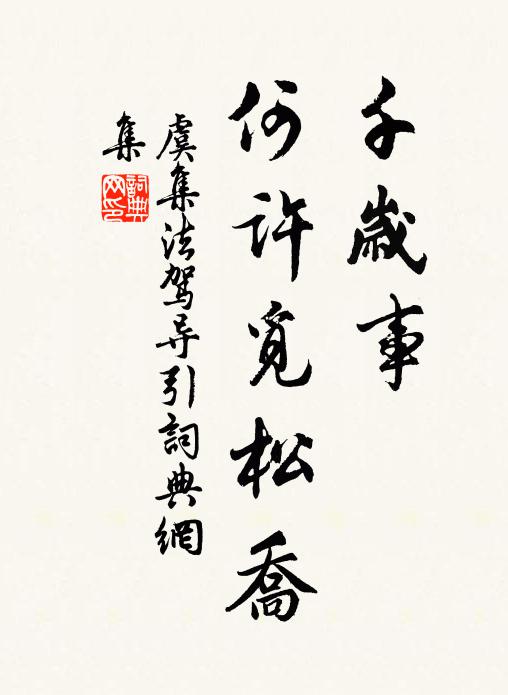 千歲事
何許覓松喬
虞集法駕导引詞典網
集
詞典
网印